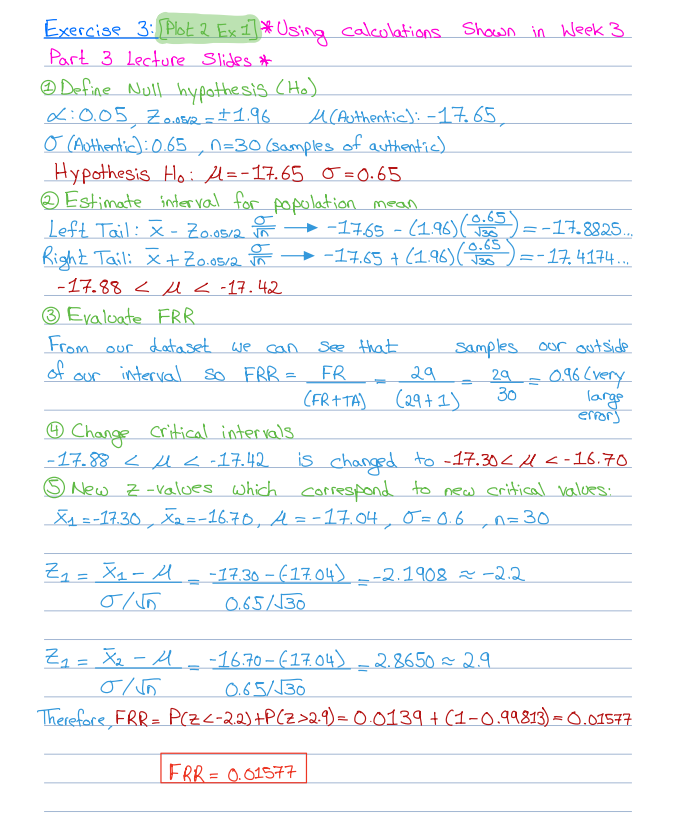 Exercise 3: [Plot 2 Ex 1] * Using calculations Shown in Week 3
Part 3 Lecture Slides *
① Define Null hypothesis (H₀)
α: 0.05, Z₀.₀₅/₂ = ±1.96 μ(Authentic): -17.65,
σ (Authentic): 0.65, n=30 (samples of authentic)
Hypothesis H₀: μ = -17.65 σ = 0.65
② Estimate interval for population mean
Left Tail: x̄ - Z₀.₀₅/₂ σ/√n → -17.65 - (1.96)(0.65/√30) = -17.8825...
Right Tail: x̄ + Z₀.₀₅/₂ σ/√n → -17.65 + (1.96)(0.65/√30) = -17.4174...
-17.88 < μ < -17.42
③ Evaluate FRR
From our dataset we can see that samples our outside
of our interval so FRR = FR/(FR+TA) = 29/(29+1) = 29/30 = 0.96 (very large error)
④ Change critical intervals
-17.88 < μ < -17.42 is changed to -17.30 < μ < -16.70
⑤ New Z-values which correspond to new critical values:
x̄₁ = -17.30, x̄₂ = -16.70, μ = -17.04, σ = 0.6, n = 30
Z₁ = x̄₁ - μ / σ/√n = -17.30 - (-17.04) / 0.65/√30 = -2.1908 ≈ -2.2
Z₂ = x̄₂ - μ / σ/√n = -16.70 - (-17.04) / 0.65/√30 = 2.8650 ≈ 2.9
Therefore, FRR = P(Z<-2.2) + P(Z>2.9) = 0.0139 + (1-0.99813) = 0.01577
FRR = 0.01577